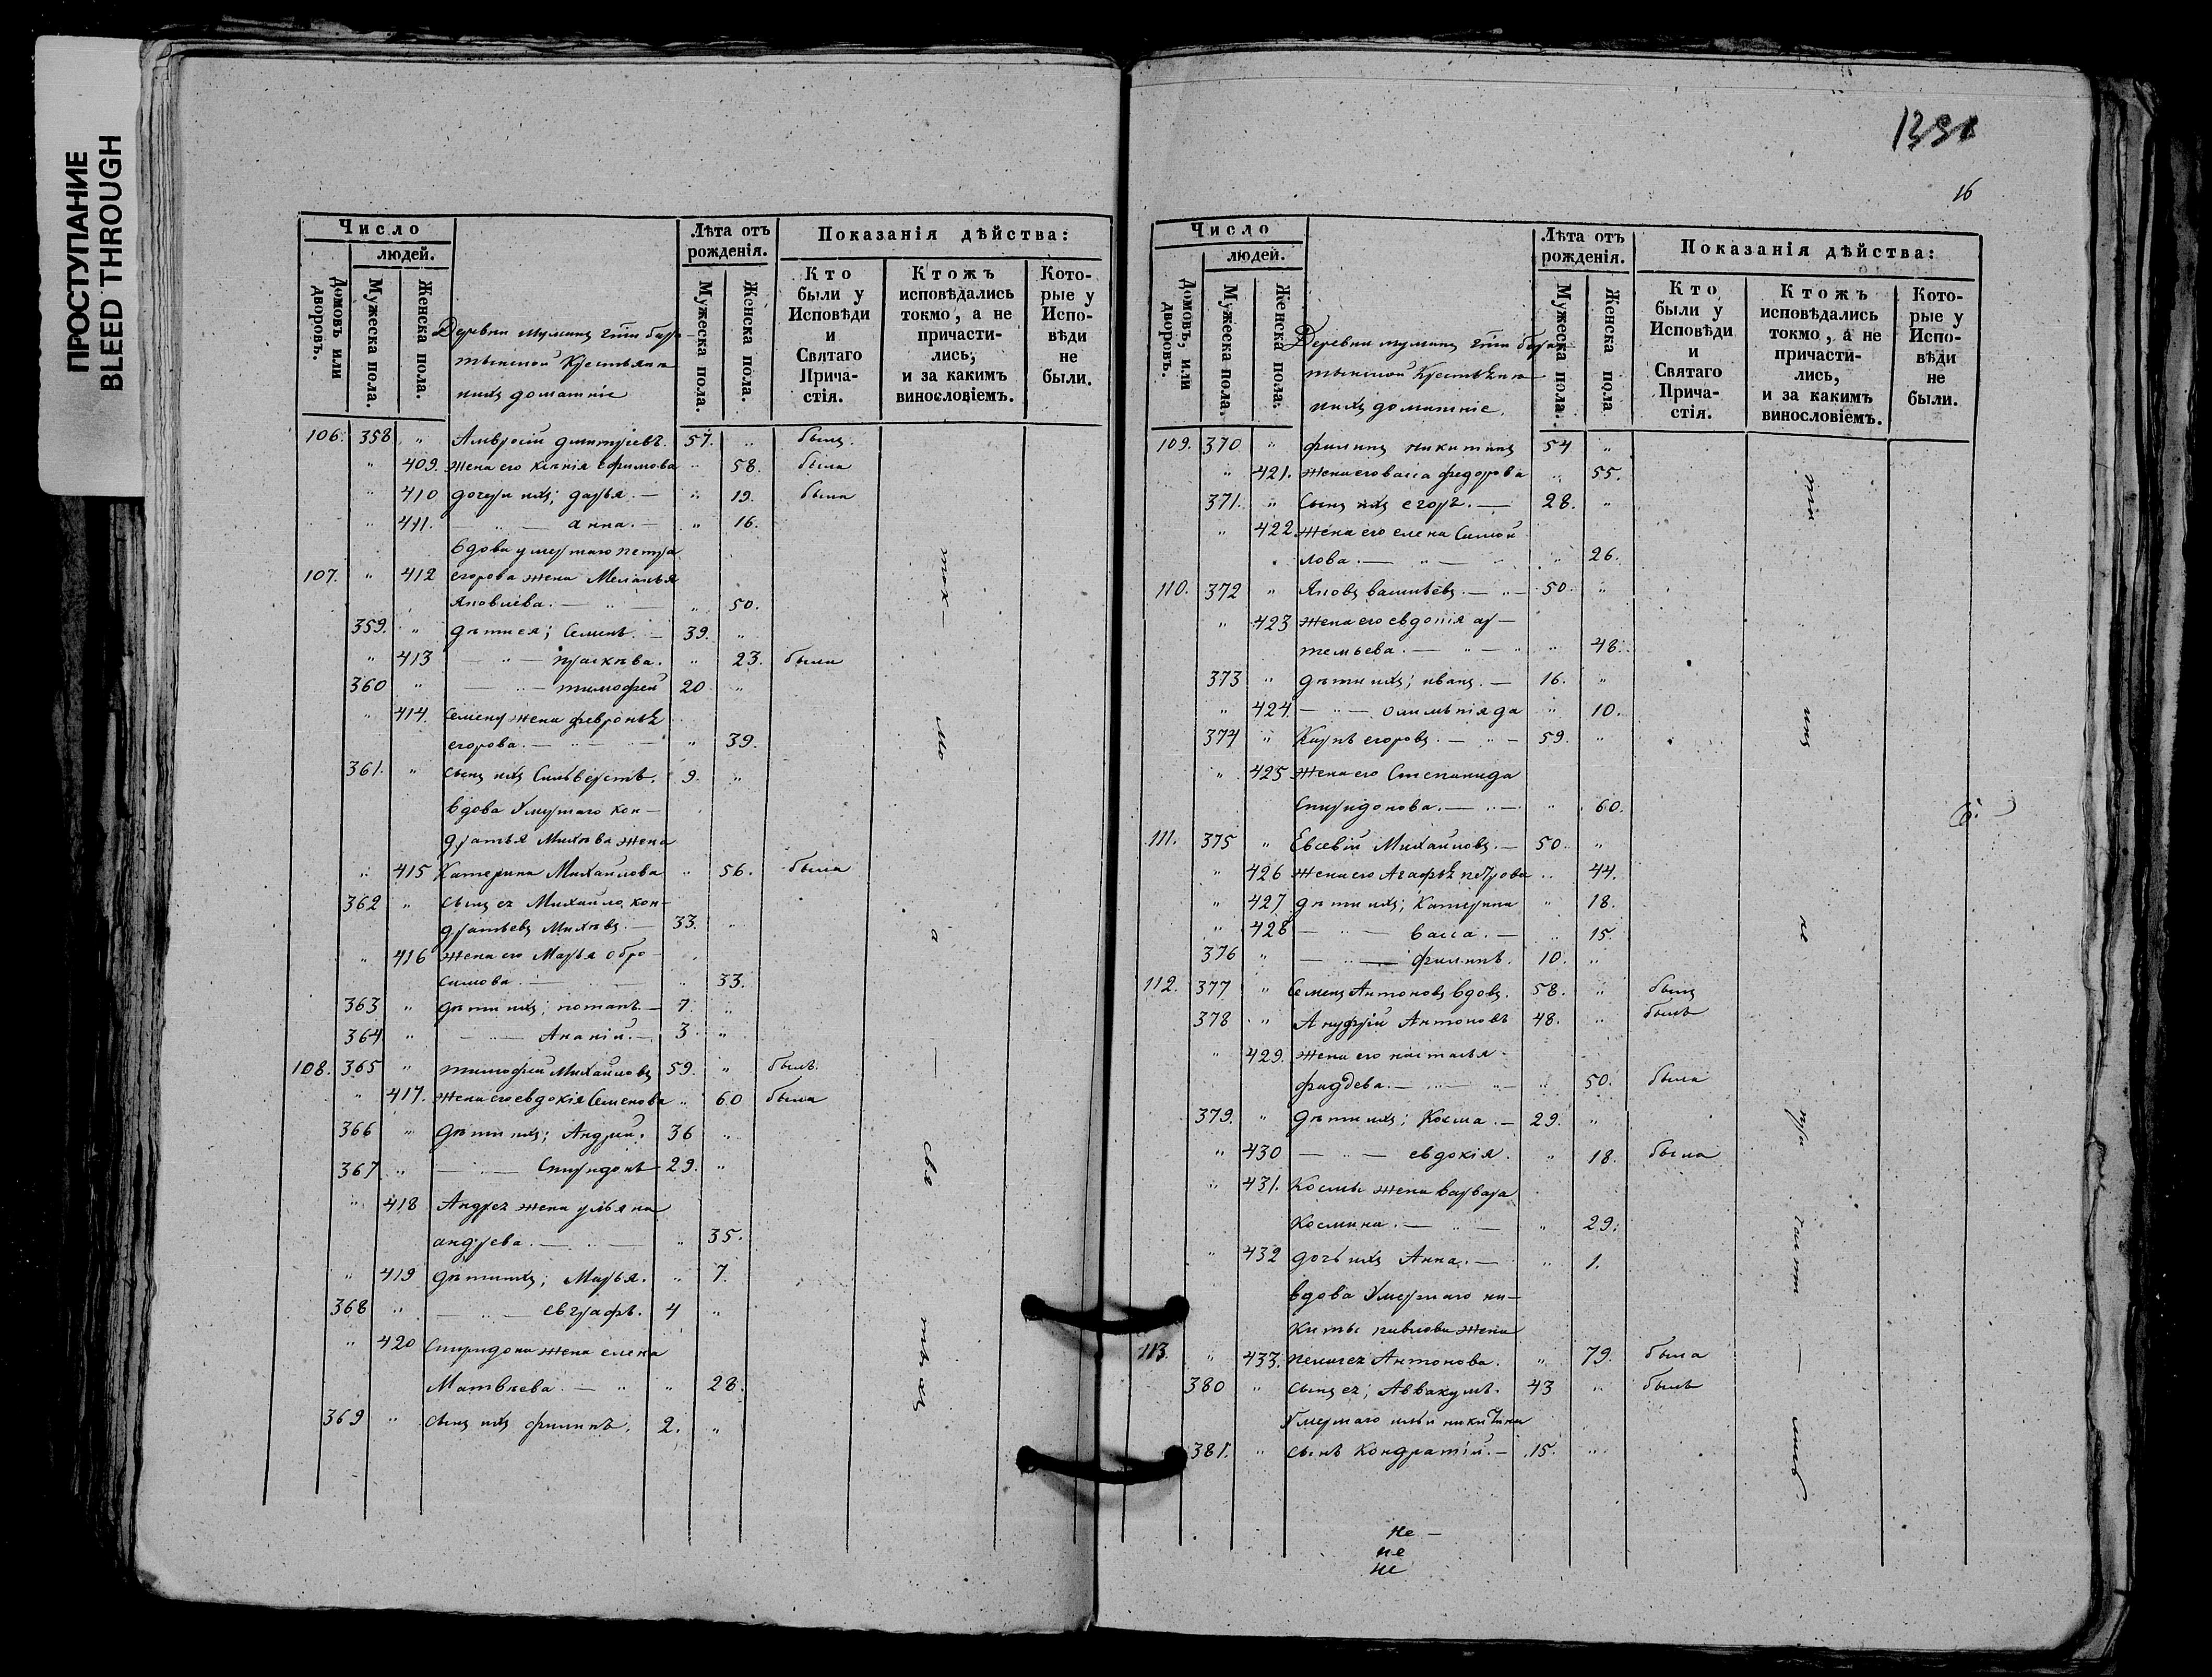 ПРОСТУПАНИЕ
BLEED THROUGH
Число
людей.
Домовъ или дворовъ.
Мужеска пола.
Женска пола.
Лѣта отъ рожденія.
Мужеска пола.
Женска пола.
Показанія дѣйства:
Кто были у Исповѣди и Святаго Прича-стія.
Ктожъ исповѣдались токмо, а не причасти-лись, и за какимъ винословіемъ.
Кото-рые у Испо-вѣди не были.
Деревни
нихъ домашніе
106. 358 " Амвросій Дмитріевъ. 57. " былъ.
" 409. жена его Ксенія Ефимова " 58. была
" 410 дочери ихъ; Дарья. — " 19. была
" 411. — " — Анна. — " 16.
вдова умершаго Петра
107. " 412 Егорова жена Меланья
Яковлева. — " — " 50.
359. " дѣти ея; Семенъ. — 39. "
" 413 — " — Прасковья. " 23. была
360 " — " — тимофей 20 "
" 414. Семену жена Февронья
егорова. — " — " 39.
361. " сынъ ихъ Сильверстъ. 9. "
вдова Умершаго Кон-
дратья Михѣва жена
" 415 Катерина Михайлова " 56. была
362 " сынъ ея Михайло Кон-
дратьевъ Михѣвъ. — 33. "
" 416 жена его Марья Обро-
симова. — " 33.
363 " дѣти ихъ; потапъ. — 7. "
364 " — " — Ананій. — 3. "
108. 365 " тимофей Михайловъ 59. " былъ.
" 417. жена его евдокія Семенова " 60 была
366 " дѣти ихъ; Андрей. 36 "
367 " — " — Спиридонъ 29. "
" 418 Андрея жена ульяна
андреева. — " — " 35.
" 419 дѣти ихъ; Марья. " 7.
368 " — " — евграфъ. 4 "
" 420 Спиридона жена елена
Матвѣева. — " " 28.
369 " сынъ ихъ филипъ. 2. "
ток — мо а — свя тѣхъ
1391
16
Число
людей.
Домовъ, или дворовъ.
Мужеска пола.
Женска пола.
Лѣта отъ рожденія.
Мужеска пола.
Женска пола
Показанія дѣйства:
Кто были у Исповѣди и Святаго Прича-стія.
Ктожъ исповѣдались токмо, а не причасти-лись, и за какимъ винословіемъ.
Кото-рые у Испо-вѣди не были.
Деревни
нихъ домашніе.
109. 370 " филипъ никитинъ 54 "
" 421. жена его васса федорова " 55.
371. " Сынъ ихъ егоръ. — 28. "
" 422 жена его елена Самой
лова. — " — " 26.
110. 372 " Яковъ васильевъ. — " — 50. "
" 423 жена его евдокія ар —
темьева. — " — " 48.
373 " дѣти ихъ; иванъ. — 16. "
" 424. — " — олимпіяда " 10.
374 " Карпъ егоровъ. — " — 59. "
" 425 жена его Степанида
Спиридонова. — " — " 60.
111. 375 " Евсевій Михайловъ. — 50. "
" 426 жена его Агафья петрова " 44.
" 427 дѣти ихъ; Катерина " 18.
" 428 — " — васса. — " 15.
376 " — " — филипъ. 10. "
112. 377 " Семенъ Антоновъ вдовъ. 58. " былъ
378 " Ануфрій Антоновъ 48. " былъ
" 429. жена его настасья
фадѣева. — " — " 50. была
379. " дѣти ихъ; Косма. — 29. "
" 430 — " — евдокія. " 18. была
" 431. Космы жена варвара
Космина. — " — " 29.
" 432 дочь ихъ Анна. — " 1.
вдова Умершаго ни —
киты павлова жена
113. " 433. пелагея Антонова. " 79. была
380 " сынъ ея; Аввакумъ. 43 " былъ
Умершаго ильи никитина
381. " сынъ Кондратій. — 15. "
тіи инъ не при част — лись
не —
не
не